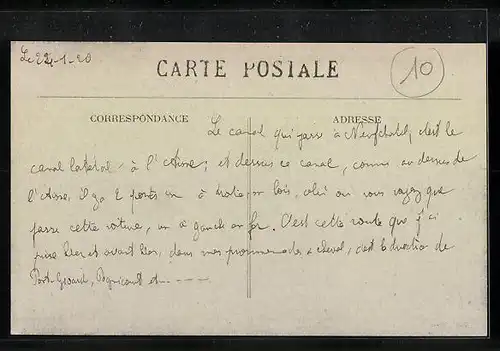 Le 22-1-20
10
CARTE POSTALE
CORRESPONDANCE
ADRESSE
Le canal qui passe à Neufchatel, c'est le
canal latéral à l'Aisne; et dessus ce canal, comme au dessus de
l'Aisne, il y a 2 ponts un à droite en bois, celui où vous voyez que
passe cette voiture, un à gauche en fer. C'est cette route que j'ai
prise hier et avant hier, dans mes promenades à cheval, c'est la direction de
Pont-Givard, Pignicourt et - - - -